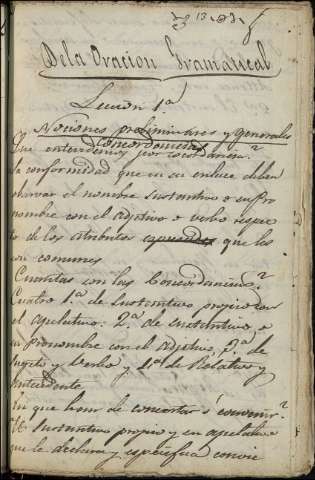 13
De la Oracion Gramatical
Leccion 1ª
Nociones preliminares y generales
Concordancias
Que entendemos por concordancia?
la conformidad que en su enlace deben
observar el nombre sustantivo o su pro
nombre con el adjetivo o verbo respec
to de los atributos que les
son comunes
Cuantas son las Concordancias?
Cuatro 1ª de sustantivo propio con
el apelativo: 2ª de sustantivo, o
su pronombre con el adjetivo, 3ª de
sugeto y Verbo y 4ª de Relativo y
Antecedente
En que han de concertar ó convenir?
El Sustantivo propio y un apelativo
que le declara y especifica convie